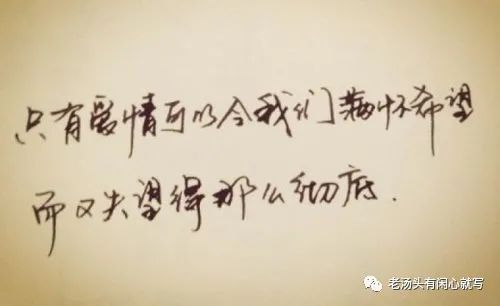 只有爱情可以令我们满怀希望
而又失望得那么彻底.
老汤头有闲心就写